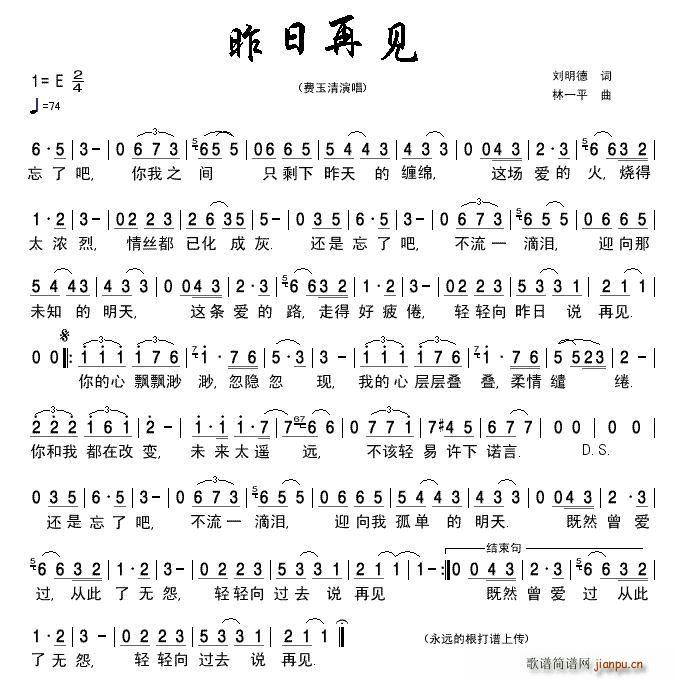 昨日再见
1=E 2/4
(费玉清演唱)
刘明德 词
♩=74
林一平 曲
6·5 | 3- | 0 6 7 3 | 5 6 5 5 | 0 6 6 5 | 5 4 4 3 | 4 3 3 | 0 0 4 3 | 2·3 | 5 6 6 3 2 |
忘了吧, 你我之间 只剩下昨天的缠绵, 这场爱的火,烧得
1·2 | 3- | 0 2 2 3 | 2 6 3 5 | 2- | 0 3 5 | 6·5 | 3- | 0 6 7 3 | 5 6 5 5 | 0 6 6 5 |
太浓烈, 情丝都已化成灰. 还是忘了吧, 不流一滴泪, 迎向那
5 4 4 3 | 4 3 3 | 0 0 4 3 | 2·3 | 5 6 6 3 2 | 1·2 | 3- | 0 2 2 3 | 5 3 3 1 | 2 1 1 |
未知的明天, 这条爱的路,走得好疲倦, 轻轻向昨日说再见.
0 0 |: 1 1 1 1 7 6 | 7 1· | 1·7 6 | 3- | 3·2 | 1 1 1 1 7 6 | 7 1· | 1·7 6 | 5 5 2 3 | 2- |
你的心飘飘渺渺,忽隐忽现, 我的心层层叠叠,柔情缱绻.
2 2 2 1 6 1 | 2- | 1·1 | 1·7 | 7 6 6 | 6· | 0 7 7 1 | 7 #4 5 | 6 5 5 | 0 0 | 0 0 |
你和我都在改变, 未来太遥远, 不该轻易许下诺言. D.S.
0 3 5 | 6·5 | 3- | 0 6 7 3 | 5 6 5 5 | 0 6 6 5 | 5 4 4 3 | 4 3 3 | 0 0 4 3 | 2·3 |
还是忘了吧, 不流一滴泪, 迎向我孤单的明天. 既然曾爱
结束句
5 6 6 3 2 | 1·2 | 3- | 0 2 2 3 | 5 3 3 1 | 2 1 1 | 1- :| 0 0 4 3 | 2·3 | 5 6 6 3 2 |
过,从此了无怨, 轻轻向过去说再见 既然曾爱过从此
1·2 | 3- | 0 2 2 3 | 5 3 3 1 | 2 1 1 | 1 ‖
(永远的根打谱上传)
了无怨, 轻轻向过去说再见.
歌谱简谱网
jianpu.cn